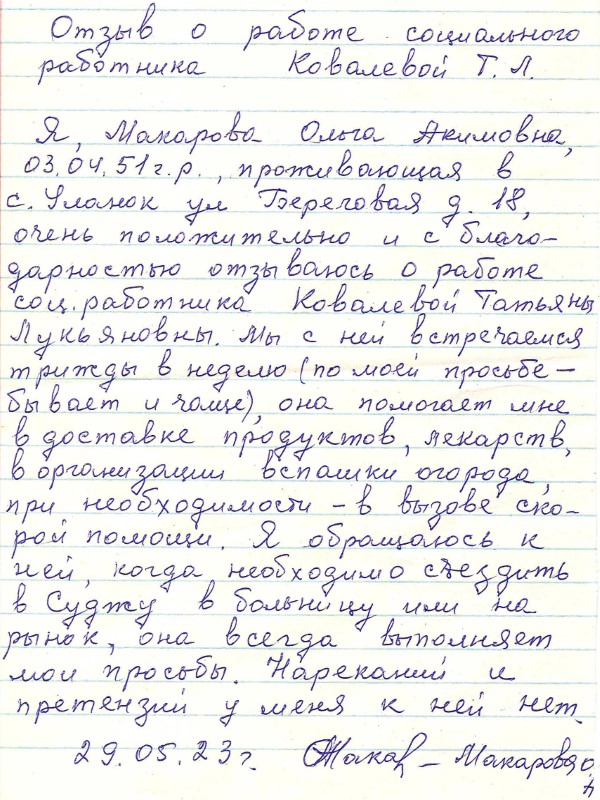 Отзыв о работе социального
работника Ковалевой Т. Л.
Я, Макарова Ольга Акимовна,
03.04.51г.р., проживающая в
с. Уланок ул Береговая д. 18,
очень положительно и с благо-
дарностью отзываюсь о работе
соц. работника Ковалевой Татьяны
Лукьяновны. Мы с ней встречаемся
трижды в неделю (по моей просьбе -
бывает и чаще), она помогает мне
в доставке продуктов, лекарств,
в организации вспашки огорода,
при необходимости - в вызове ско-
рой помощи. Я обращаюсь к
ней, когда необходимо съездить
в Суджу в больницу или на
рынок, она всегда выполняет
мои просьбы. Нареканий и
претензий у меня к ней нет.
29.05.23г. - Макарова О.
А